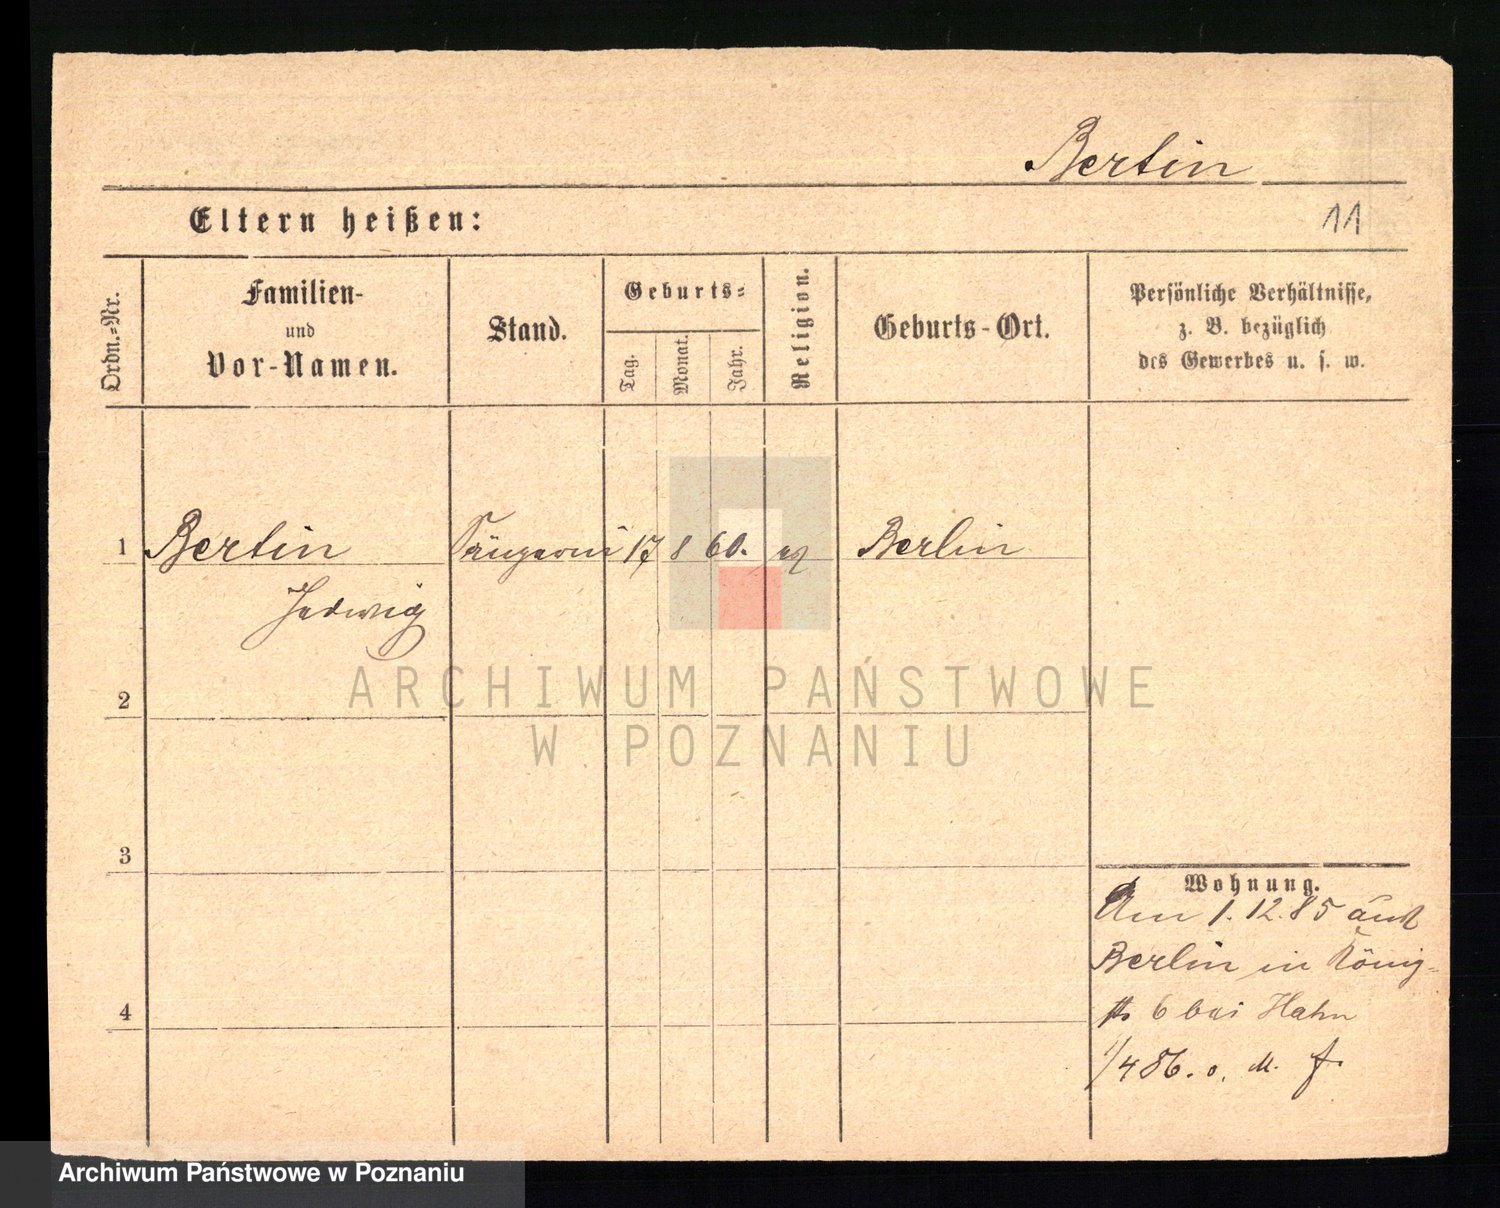 Bertin
Eltern heißen:
11
Ordn.-Nr.
Familien-
und
Vor-Namen.
Stand.
Geburts-
Tag.
Monat.
Jahr.
Religion.
Geburts-Ort.
Persönliche Verhältnisse,
z. B. bezüglich
des Gewerbes u. s. w.
1 Bertin Sängerin 17 8 60. ev Berlin
Hedwig
2
3
4
Wohnung.
Am 1. 12. 85 aus
Berlin in König-
str 6 bei Hahn
1/4 86. o. M. f.
ARCHIWUM PAŃSTWOWE
W POZNANIU
Archiwum Państwowe w Poznaniu